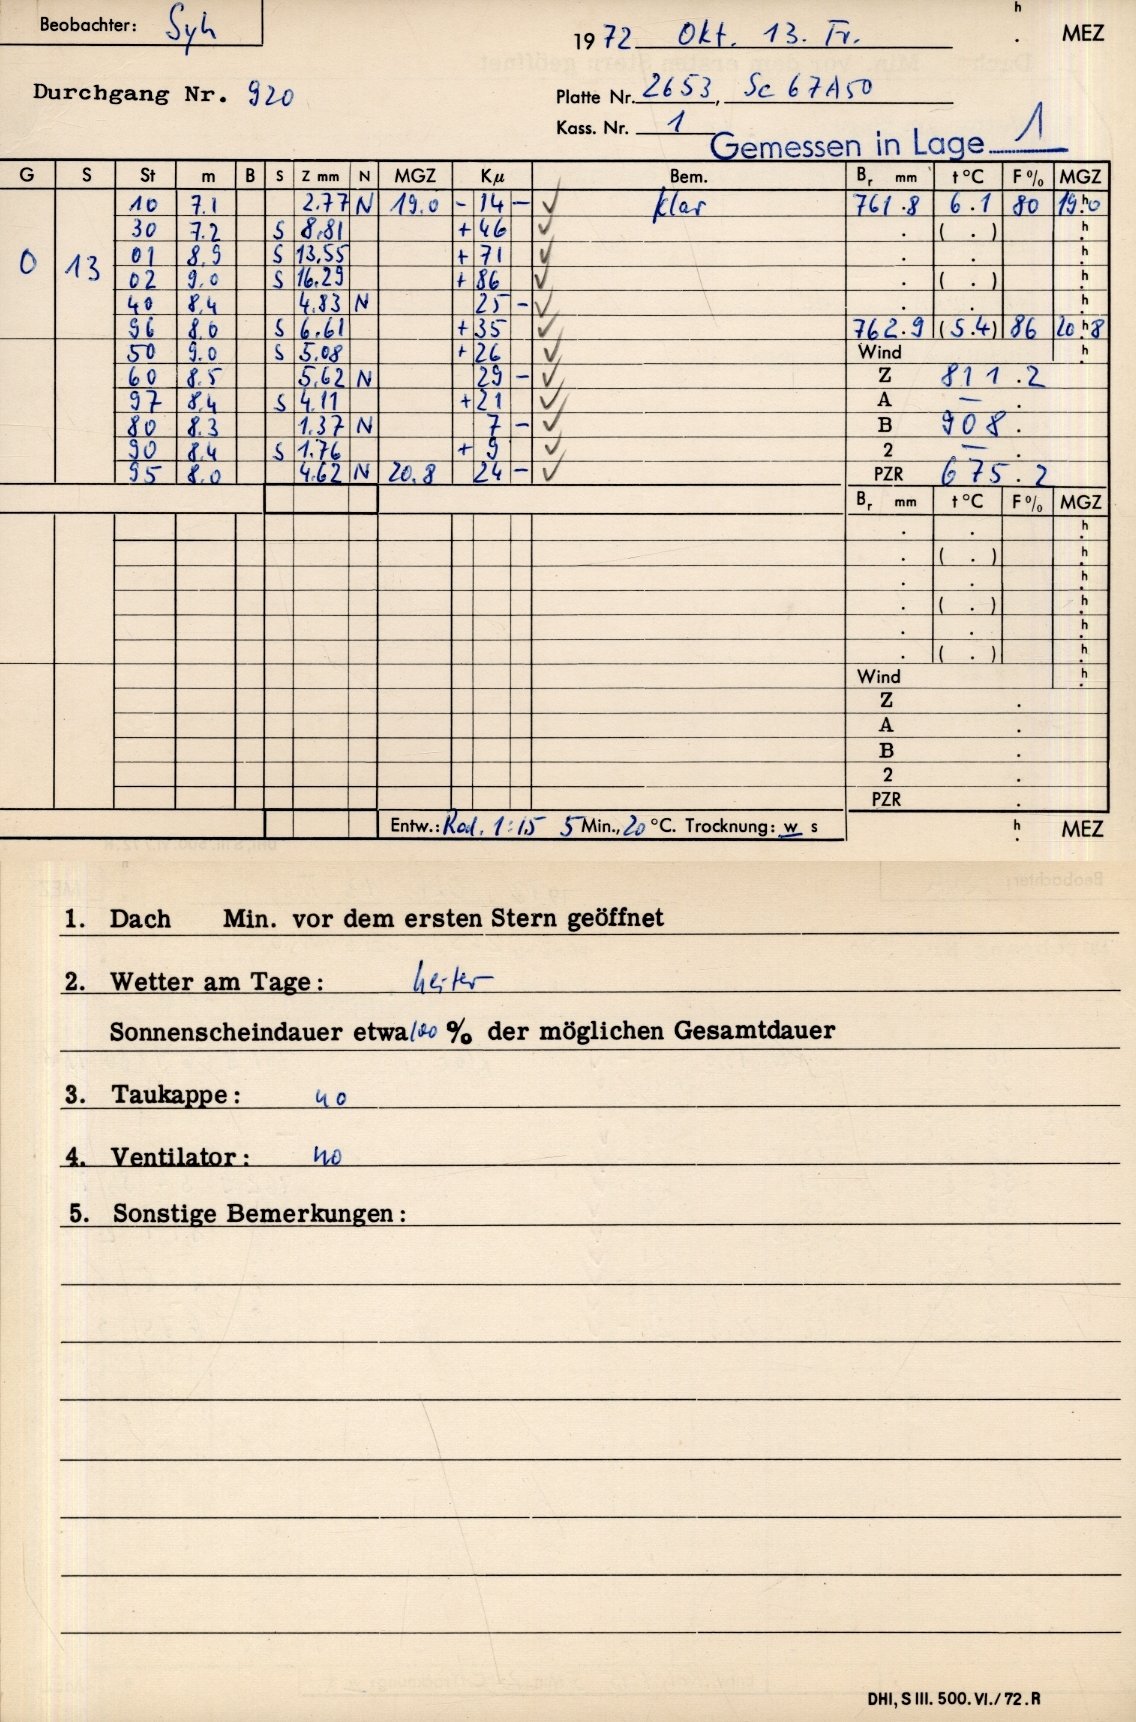 Beobachter: Syh
h
1972 Okt. 13. Fr. . MEZ
Durchgang Nr. 920
Platte Nr. 2653, Sc 67A50
Kass. Nr. 1
Gemessen in Lage 1
G S St m B S Z mm N MGZ Kµ Bem. Br mm t °C F % MGZ
10 7.1 2.77 N 19.0 - 14 - ✓ klar 761.8 6.1 80 19.h0
30 7.2 S 8.81 + 46 ✓ . ( . ) h
0 13 01 8.9 S 13.55 + 71 ✓ . . h
02 9.0 S 16.29 + 86 ✓ . ( . ) h
40 8.4 4.83 N 25 - ✓ . . h
96 8.0 S 6.61 + 35 ✓ 762.9 (5.4) 86 20.h8
50 9.0 S 5.08 + 26 ✓ Wind h
60 8.5 5.62 N 29 - ✓ Z 811.2
97 8.4 S 4.11 + 21 ✓ A — .
80 8.3 1.37 N 7 - ✓ B 908.
90 8.4 S 1.76 + 9 ✓ 2 — .
95 8.0 4.62 N 20.8 24 - ✓ PZR 675.2
Br mm t °C F % MGZ
. . h
. ( . ) h
. . h
. ( . ) h
. . h
. ( . ) h
Wind h
Z .
A .
B .
2 .
PZR .
Entw.: Rod. 1:15 5 Min., 20 °C. Trocknung: w s h. MEZ
1. Dach Min. vor dem ersten Stern geöffnet
2. Wetter am Tage: heiter
Sonnenscheindauer etwa 100 % der möglichen Gesamtdauer
3. Taukappe: no
4. Ventilator: no
5. Sonstige Bemerkungen:
DHI, S III. 500. VI./72. R